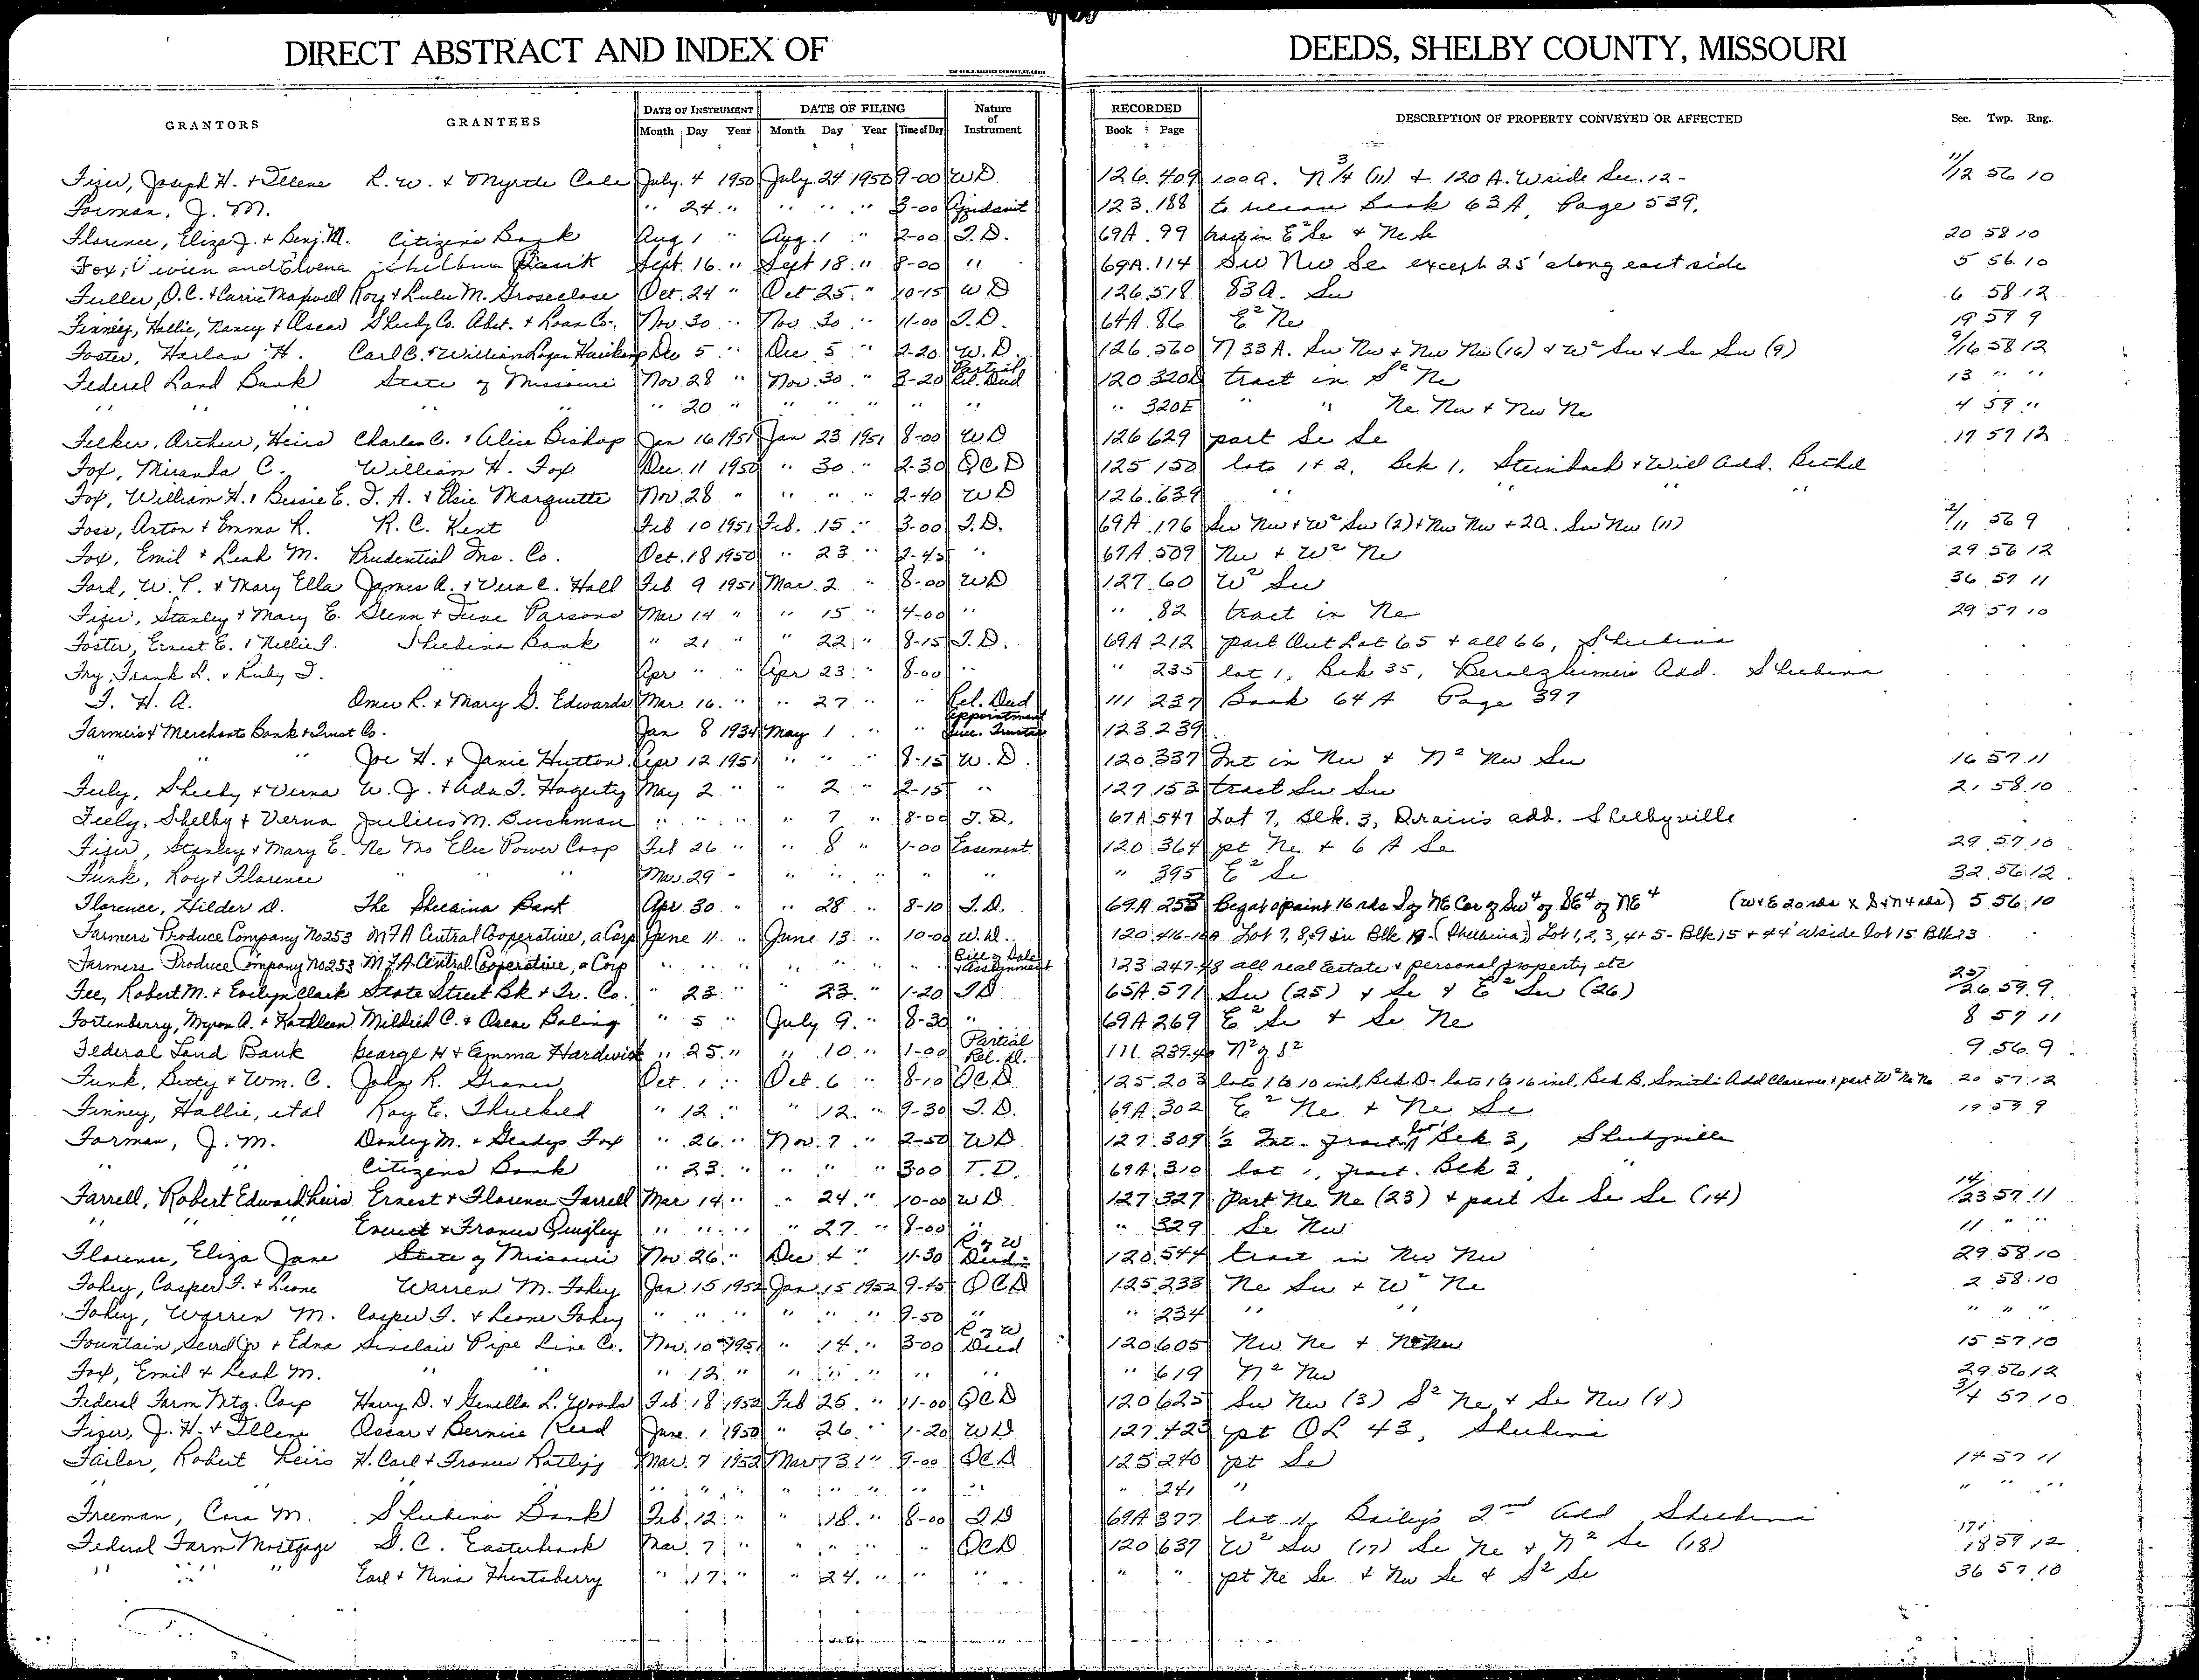 DIRECT ABSTRACT AND INDEX OF DEEDS, SHELBY COUNTY, MISSOURI
GRANTORS GRANTEES DATE OF INSTRUMENT DATE OF FILING Nature of Instrument RECORDED DESCRIPTION OF PROPERTY CONVEYED OR AFFECTED Sec. Twp. Rng.
Month Day Year Month Day Year Time of Day Book Page
Fizer, Joseph H. + Illene R. W. + Myrtle Cole July 4 1950 July 24 1950 9-00 WD 126 409 100 a. N 3/4 (11) + 120 A. W side Sec. 12 - 11/12 56 10
Forman, J. M. " 24 " " " " 3-00 Affidavit 123 188 to Book 63A, Page 539.
Florence, Eliza J. + Benj. M. Citizens Bank Aug 1 " Aug. 1 " 2-00 T.D. 69A 99 tract in E² Se + Ne Se 20 58 10
Fox, Vivien and Elvena Shelbina Bank Sept. 16 " Sept 18 " 8-00 " 69A 114 Sw Nw Se except 25' along east side 5 56 10
Fuller, O.C. + Carrie Maxwell Roy + Lulu M. Groseclose Oct. 24 " Oct 25 " 10-15 WD 126 518 83 a. Sw 6 58 12
Finney, Hallie, Nancy + Oscar Shelby Co. Abst. + Loan Co. Nov. 30 " Nov 30 " 11-00 T.D. 64A 86 E² Ne 19 59 9
Foster, Harlan H. Carl C. + William Logan Dec 5 " Dec 5 " 2-20 W.D. 126 560 N 33 A. Sw Nw + Nw Nw (16) + W² Sw + Se Sw (9) 9/16 58 12
Federal Land Bank State of Missouri Nov 28 " Nov. 30 " 3-20 Partial Rel. Deed 120 320D tract in S² Ne 13 " "
" " " " " " 20 " " " " " " " 320E " " Ne Nw + Nw Ne 4 59 "
Felker, Arthur, Heirs Charles C. + Alice Bishop Jan 16 1951 Jan 23 1951 8-00 WD 126 629 part Se Se 17 57 12
Fox, Miranda C. William H. Fox Dec. 11 1950 " 30 " 2-30 QCD 125 150 lots 1 + 2, Blk 1, Steinbach + Will Add. Bethel
Fox, William H. + Bessie E. T. A. + Elsie Marquette Nov. 28 " " " " 2-40 WD 126 639 " " "
Foss, Anton + Emma K. R. C. Kent Feb 10 1951 Feb. 15 " 3-00 T.D. 69A 176 Sw Nw + W² Sw (2) + Nw Nw + 2a. Sw Nw (11) 2/11 56 9
Fox, Emil + Leah M. Prudential Ins. Co. Oct. 18 1950 " 23 " 2-45 " 67A 509 Nw + W² Ne 29 56 12
Ford, W. P. + Mary Ella James A. + Vera C. Hall Feb 9 1951 Mar. 2 " 8-00 WD 127 60 W² Sw 36 57 11
Fizer, Stanley + Mary E. Glenn + June Parsons Mar 14 " " 15 " 4-00 " " 82 tract in Ne 29 57 10
Foster, Ernest E. + Nellie F. Shelbina Bank " 21 " " 22 " 8-15 T.D. 69A 212 part Out Lot 65 + all 66, Shelbina
Fry, Frank L. + Ruby I. " " Apr " " Apr 23 " 8-00 " " 235 lot 1, Blk 35, Add. Shelbina
F. H. A. Omer R. + Mary G. Edwards Mar. 16 " " 27 " " Rel. Deed 111 237 Book 64 A Page 397
Farmers + Merchants Bank + Trust Co. Jan 8 1934 May 1 " " Appointment Succ. Trustee 123 239
" " " Joe H. + Janie Hutton Apr. 12 1951 " " " 8-15 W.D. 120 337 Int in Nw + N² Nw Sw 16 57 11
Feely, Shelby + Verna W. J. + Ada I. Hagerty May 2 " " 2 " 2-15 " 127 153 tract Sw Sw 21 58 10
Feely, Shelby + Verna Julius M. Buckman " " " " 7 " 8-00 T.D. 67A 547 Lot 7, Blk. 3, add. Shelbyville
Fizer, Stanley + Mary E. Ne Mo Elec Power Coop Feb 26 " " 8 " 1-00 Easement 120 364 pt Ne + 6 A Se 29 57 10
Funk, Roy + Florence " " " Mar. 29 " " " " " " " 395 E² Se 32 56 12
Florence, Hilder D. The Shelbina Bank Apr. 30 " " 28 " 8-10 T.D. 69A 255 Beg at a point 16 rds S of NE Cor of Sw⁴ of SE⁴ of NE⁴ (W+E 20 rds x S+N 4 rds) 5 56 10
Farmers Produce Company No 253 MFA Central Cooperative, a Corp June 11 " June 13 " 10-00 W.D. 120 416-16A Lot 7, 8, 9 in Blk 19 - (Shelbina) Lot 1, 2, 3, 4 + 5 - Blk 15 + 44' W side lot 15 Blk 23
Farmers Produce Company No 253 MFA Central Cooperative, a Corp " " " " " " " Bill of Sale + Assignment 123 247-48 all real Estate + personal property etc
Fee, Robert M. + Evelyn Clark State Street Bk + Tr. Co. " 23 " " 23 " 1-20 TD 65A 571 Sw (25) + Se + E² Sw (26) 25/26 59 9
Fortenberry, Myron A. + Kathleen Mildred C. + Oscar Boling " 5 " July 9 " 8-30 " 69A 269 E² Se + Se Ne 8 57 11
Federal Land Bank George H + Emma Hardwick " 25 " " 10 " 1-00 Partial Rel. D. 111 239-40 N² of S² 9 56 9
Funk, Betty + Wm. C. John R. Graves Oct. 1 " Oct. 6 " 8-10 QCD 125 203 lots 1 to 10 incl, Blk D - lots 1 to 16 incl, Blk B, Smith's Add Clarence + part W² Ne Ne 20 57 12
Finney, Hallie, etal Roy E. Threlkeld " 12 " " 12 " 9-30 T.D. 69A 302 E² Ne + Ne Se 19 59 9
Forman, J. M. Donley M. + Gladys Fox " 26 " Nov. 7 " 2-50 WD 127 309 ½ Int. fract. lot 1 Blk 3, Shelbyville
" " Citizens Bank " 23 " " " " 3-00 T.D. 69A 310 lot 1, fract. Blk 3, "
Farrell, Robert Edward heirs Ernest + Florence Farrell Mar 14 " " 24 " 10-00 WD 127 327 Part Ne Ne (23) + part Se Se Se (14) 14/23 57 11
" " " Everett + Frances Quigley " " " " 27 " 8-00 " " 329 Se Nw 11 " "
Florence, Eliza Jane State of Missouri Nov 26 " Dec 4 " 11-30 R of W Deed 120 544 tract in Nw Nw 29 58 10
Fohey, Casper F. + Leone Warren M. Fohey Jan. 15 1952 Jan. 15 1952 9-45 QCD 125 233 Ne Sw + W² Ne 2 58 10
Fohey, Warren M. Casper F. + Leone Fohey " " " " " " 9-50 " " 234 " " " " "
Fountain, Jr + Edna Sinclair Pipe Line Co. Nov. 10 1951 " 14 " 3-00 R of W Deed 120 605 Nw Ne + Ne Nw 15 57 10
Fox, Emil + Leah M. " " " 12 " " " " " " " 619 N² Nw 29 56 12
Federal Farm Mtg. Corp Harry D. + Genella L. Woods Feb 18 1952 Feb 25 " 11-00 QCD 120 625 Sw Nw (3) S² Ne + Se Nw (4) 3/4 57 10
Fizer, J. H. + Illene Oscar + Bernice Reed June 1 1950 " 26 " 1-20 WD 127 423 pt OL 43, Shelbina
Failor, Robert Heirs H. Carl + Frances Mar. 7 1952 Mar 13 " 9-00 QCD 125 240 pt Se 14 57 11
" " " " " " " " " " " 241 " " " "
Freeman, Cora M. Shelbina Bank Feb. 12 " " 18 " 8-00 TD 69A 377 lot 11, Bailey's 2nd Add Shelbina
Federal Farm Mortgage S. C. Easterbrook Mar. 7 " " " " " QCD 120 637 W² Sw (17) Se Ne + N² Se (18) 17/18 59 12
" " " Earl + Nina Huntsberry " 17 " " 24 " " " " " pt Ne Se + Nw Se + S² Se 36 57 10